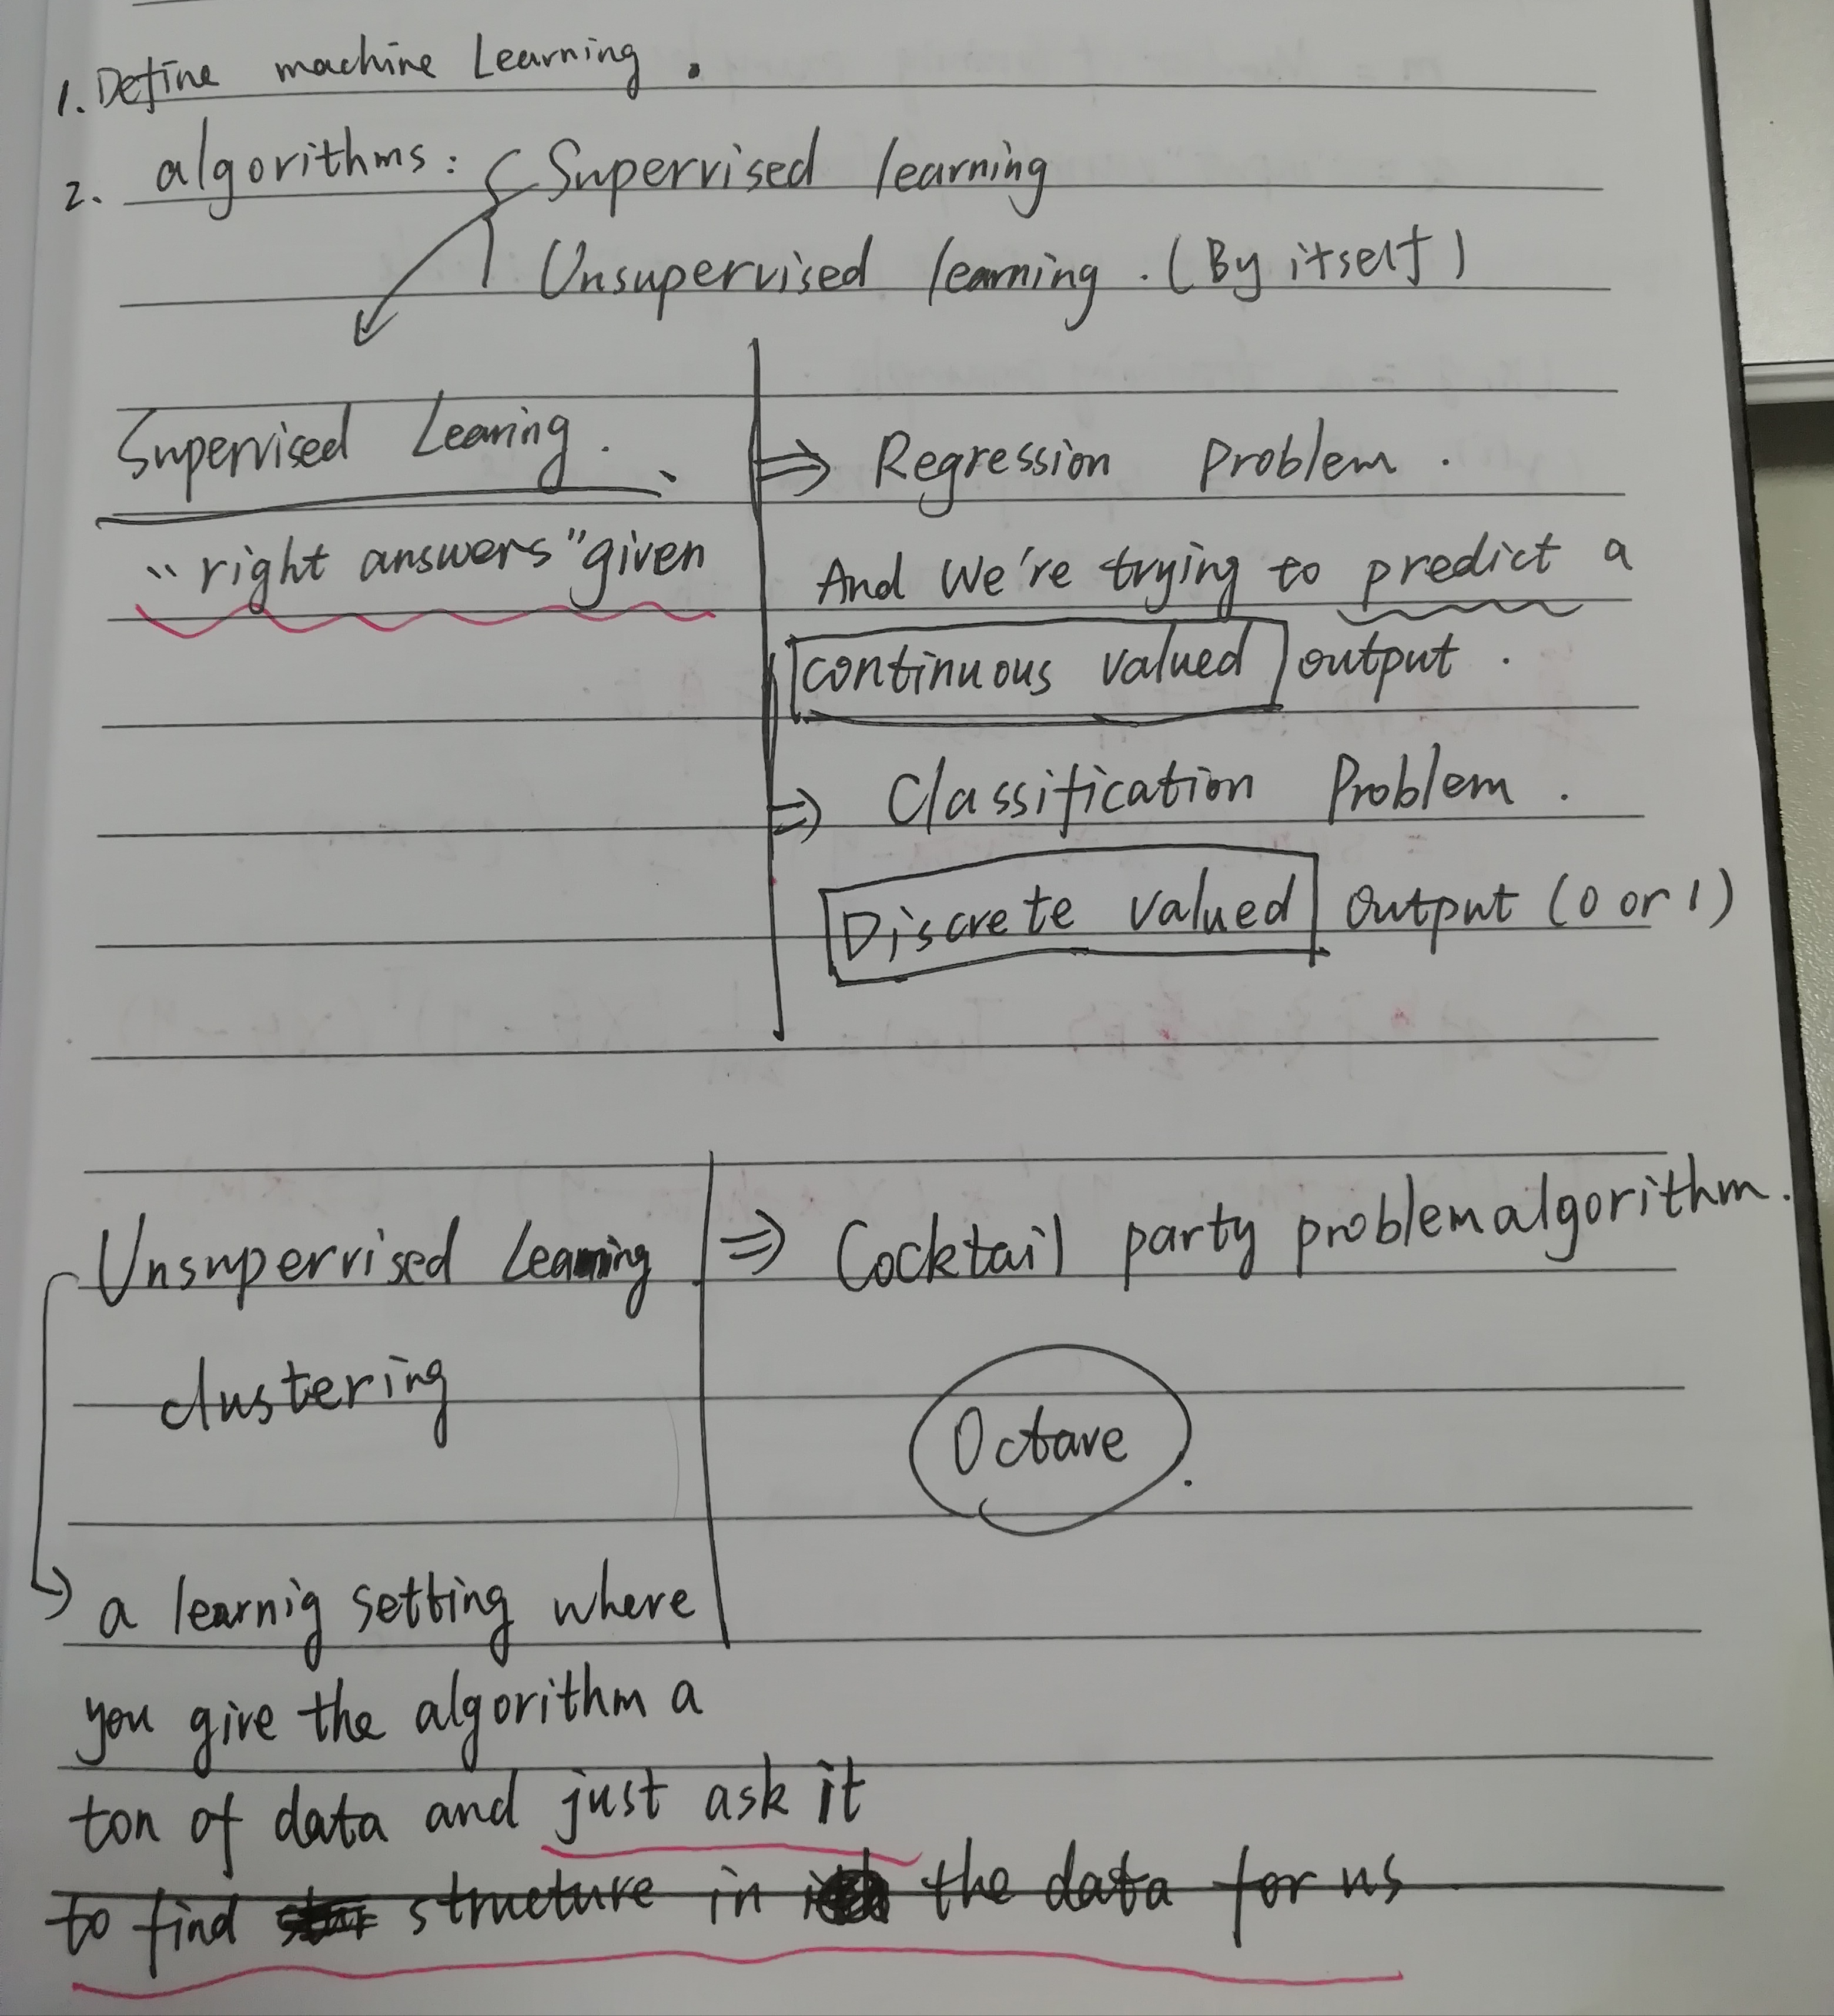 1. Define machine Learning.
2. algorithms: Supervised learning
Unsupervised learning. (By itself)
Supervised Learing.
"right answers" given
⇒ Regression Problem.
And We're trying to predict a
continuous valued output.
⇒ Classification Problem.
Discrete valued output (0 or 1)
Unsupervised Learning
clustering
⇒ Cocktail party problem algorithm.
Octave
a learnig setting where
you give the algorithm a
ton of data and just ask it
to find structure in the data for us